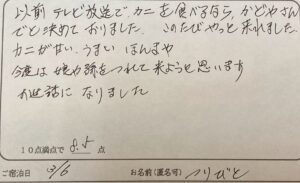 以前 テレビ放送で、カニを食べるなら、かどやさん
でと決めておりました。このたびやっと来れました。
カニが甘い、うまい ほんまや
今度は娘や孫をつれて来ようと思います
お世話になりました
10点満点で 8.5 点
ご宿泊日 3/6 お名前(匿名可) つりびと